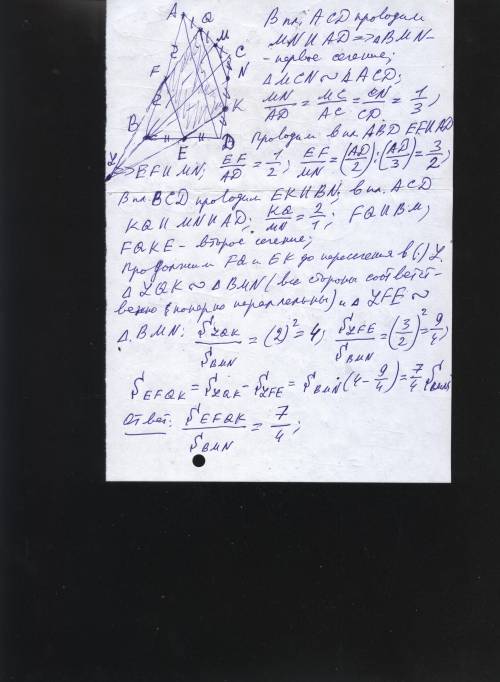 A Q M C N K D E B F L
В пл. ACD проводим
MN || AD => ΔBMN -
- первое сечение;
ΔMCN ~ ΔACD;
MN/AD = MC/AC = CN/CD = 1/3;
Проводим в пл. ABD EF || AD
=> EF || MN; EF/AD = 1/2; EF/MN = (AD/2) : (AD/3) = 3/2;
В пл. BCD проводим EK || BN; в пл. ACD
KQ || MN || AD; KQ/MN = 2/1; FQ || BM;
FQKE - второе сечение;
Продолжим FQ и EK до пересечения в (·) L.
Δ LQK ~ ΔBMN (все стороны соответст-
венно попарно параллельны) и Δ LFE ~
Δ BMN; S LQK / S BMN = (2)² = 4; S LFE / S BMN = (3/2)² = 9/4;
S EFQK = S LQK - S LFE = S BMN (4 - 9/4) = 7/4 S BMN;
Ответ: S EFQK / S BMN = 7/4;